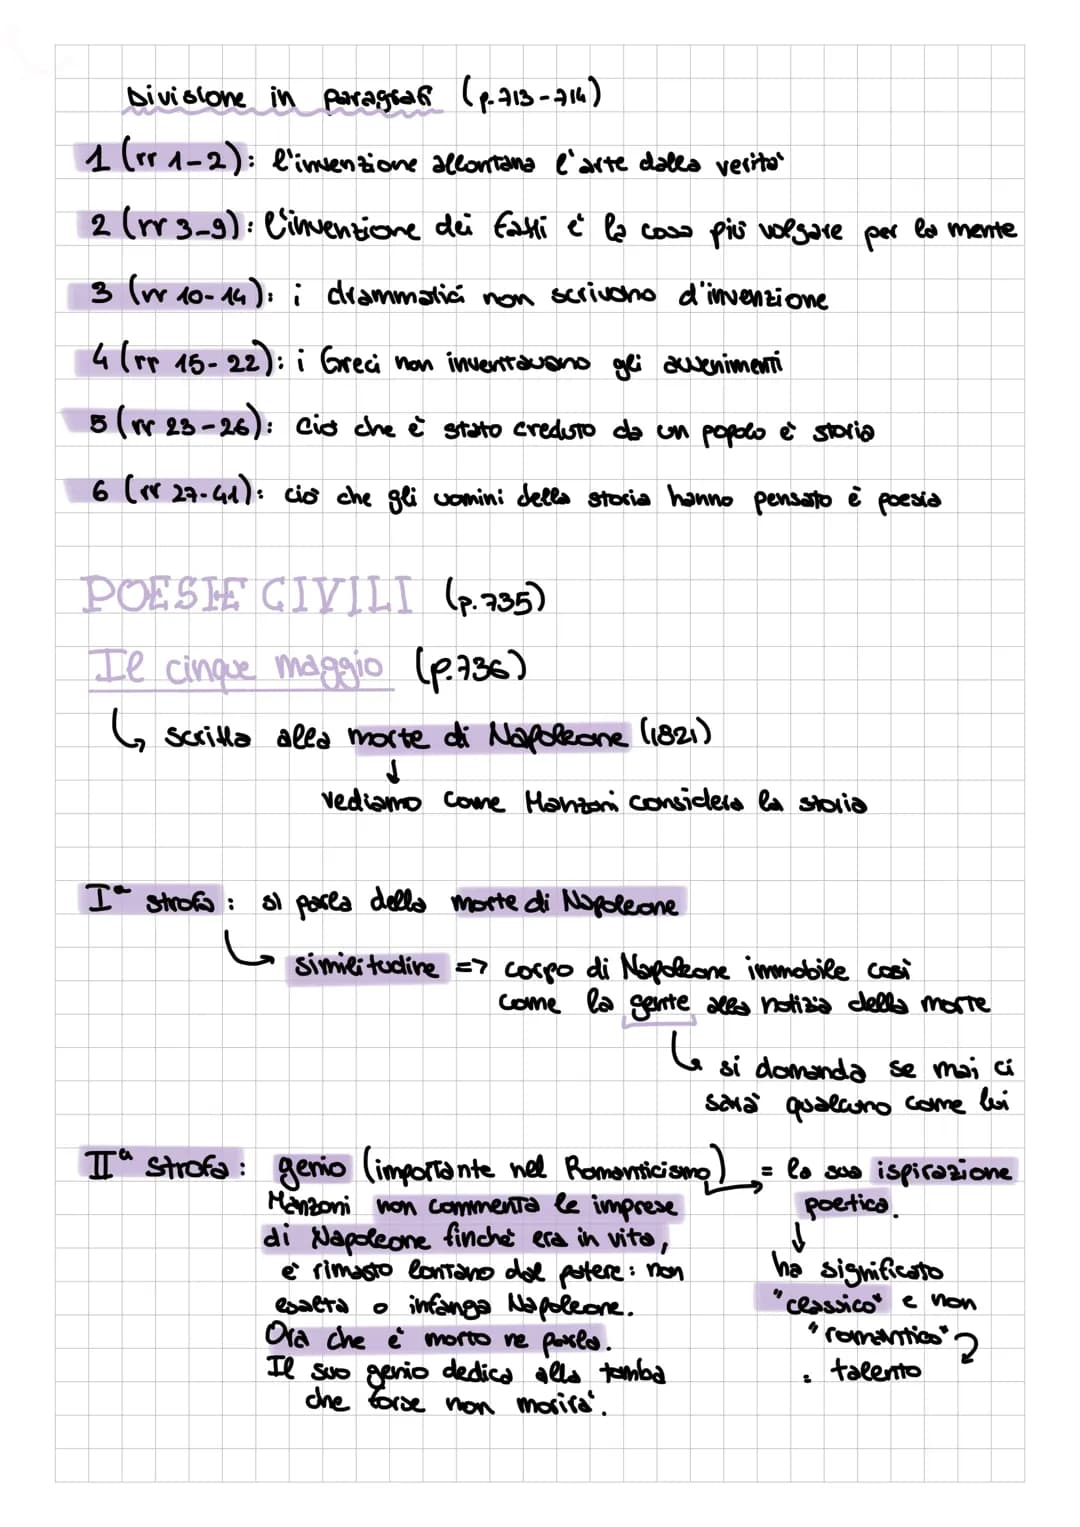 Divisione in paragrafi (p.713-714)
1 (rr 1-2): l'invenzione allontana l'arte dalla verità
2 (rr 3-9): l'invenzione dei fatti è la cosa più volgare per la mente
3 (rr 10-14): i drammatici non scrivono d'invenzione
4 (rr 15-22): i Greci non inventavano gli avvenimenti
5 (rr 23-26): ciò che è stato creduto da un popolo è storia
6 (rr 27-41): ciò che gli uomini della storia hanno pensato è poesia
POESIE CIVILI (p.735)
Il cinque maggio (p.736)
↳ scritta alla morte di Napoleone (1821)
↓
vediamo come Manzoni considera la storia
Iª strofa: si parla della morte di Napoleone
↳ similitudine => corpo di Napoleone immobile così
come la gente alla notizia della morte
↳ si domanda se mai ci
sarà qualcuno come lui
IIª strofa: genio (importante nel Romanticismo) = la sua ispirazione
poetica.
Manzoni non commenta le imprese
di Napoleone finché era in vita,
è rimasto lontano dal potere: non
esalta o infanga Napoleone.
Ora che è morto ne parla.
Il suo genio dedica alla tomba
che forse non morirà.
↓
ha significato
"classico" e non
"romantico"
: talento